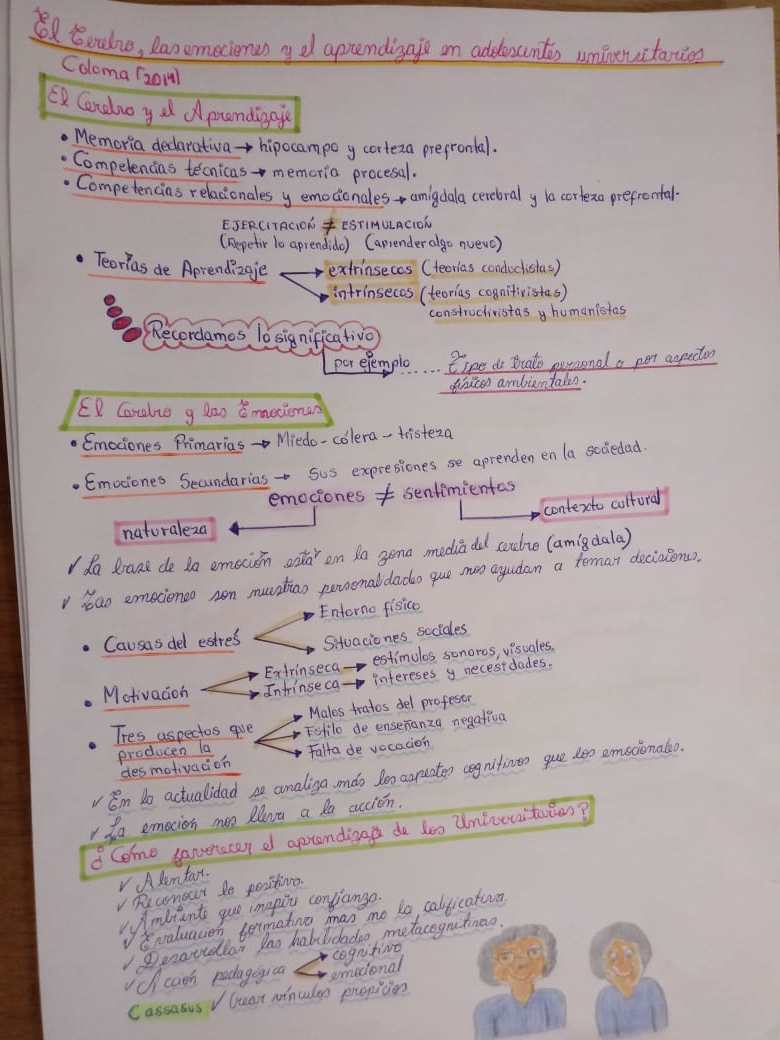 El Cerebro, las emociones y el aprendizaje en adolescentes universitarios
Coloma (2019)
El Cerebro y el Aprendizaje
• Memoria declarativa → hipocampo y corteza prefrontal.
• Competencias técnicas → memoria procesal.
• Competencias relacionales y emocionales → amígdala cerebral y la corteza prefrontal.
EJERCITACIÓN ≠ ESTIMULACIÓN
(Repetir lo aprendido) (aprender algo nuevo)
• Teorías de Aprendizaje
extrínsecos (teorías conductistas)
intrínsecos (teorías cognitivistas)
constructivistas y humanistas
Recordamos lo significativo
por ejemplo ..... Tipo de trato personal o por aspectos
físicos ambientales.
El Cerebro y las Emociones
• Emociones Primarias → Miedo - cólera - tristeza
• Emociones Secundarias → Sus expresiones se aprenden en la sociedad.
emociones ≠ sentimientos
naturaleza contexto cultural
✓ La base de la emoción está en la zona media del cerebro (amígdala)
✓ Las emociones son nuestras personalidades que nos ayudan a tomar decisiones.
• Causas del estrés
Entorno físico
Situaciones sociales
• Motivación
Extrínseca → estímulos sonoros, visuales.
Intrínseca → intereses y necesidades.
• Tres aspectos que
producen la
desmotivación
Malos tratos del profesor
Estilo de enseñanza negativa
Falta de vocación
✓ En la actualidad se analiza más los aspectos cognitivos que los emocionales.
✓ La emoción nos lleva a la acción.
¿Cómo favorecer el aprendizaje de los Universitarios?
✓ Alentar.
✓ Reconocer lo positivo.
✓ Ambiente que inspire confianza.
✓ Evaluación formativa mas no la calificativa.
✓ Desarrollar las habilidades metacognitivas.
✓ Acción pedagógica
cognitivo
emocional
Cassasus ✓ Crear vínculos propicios